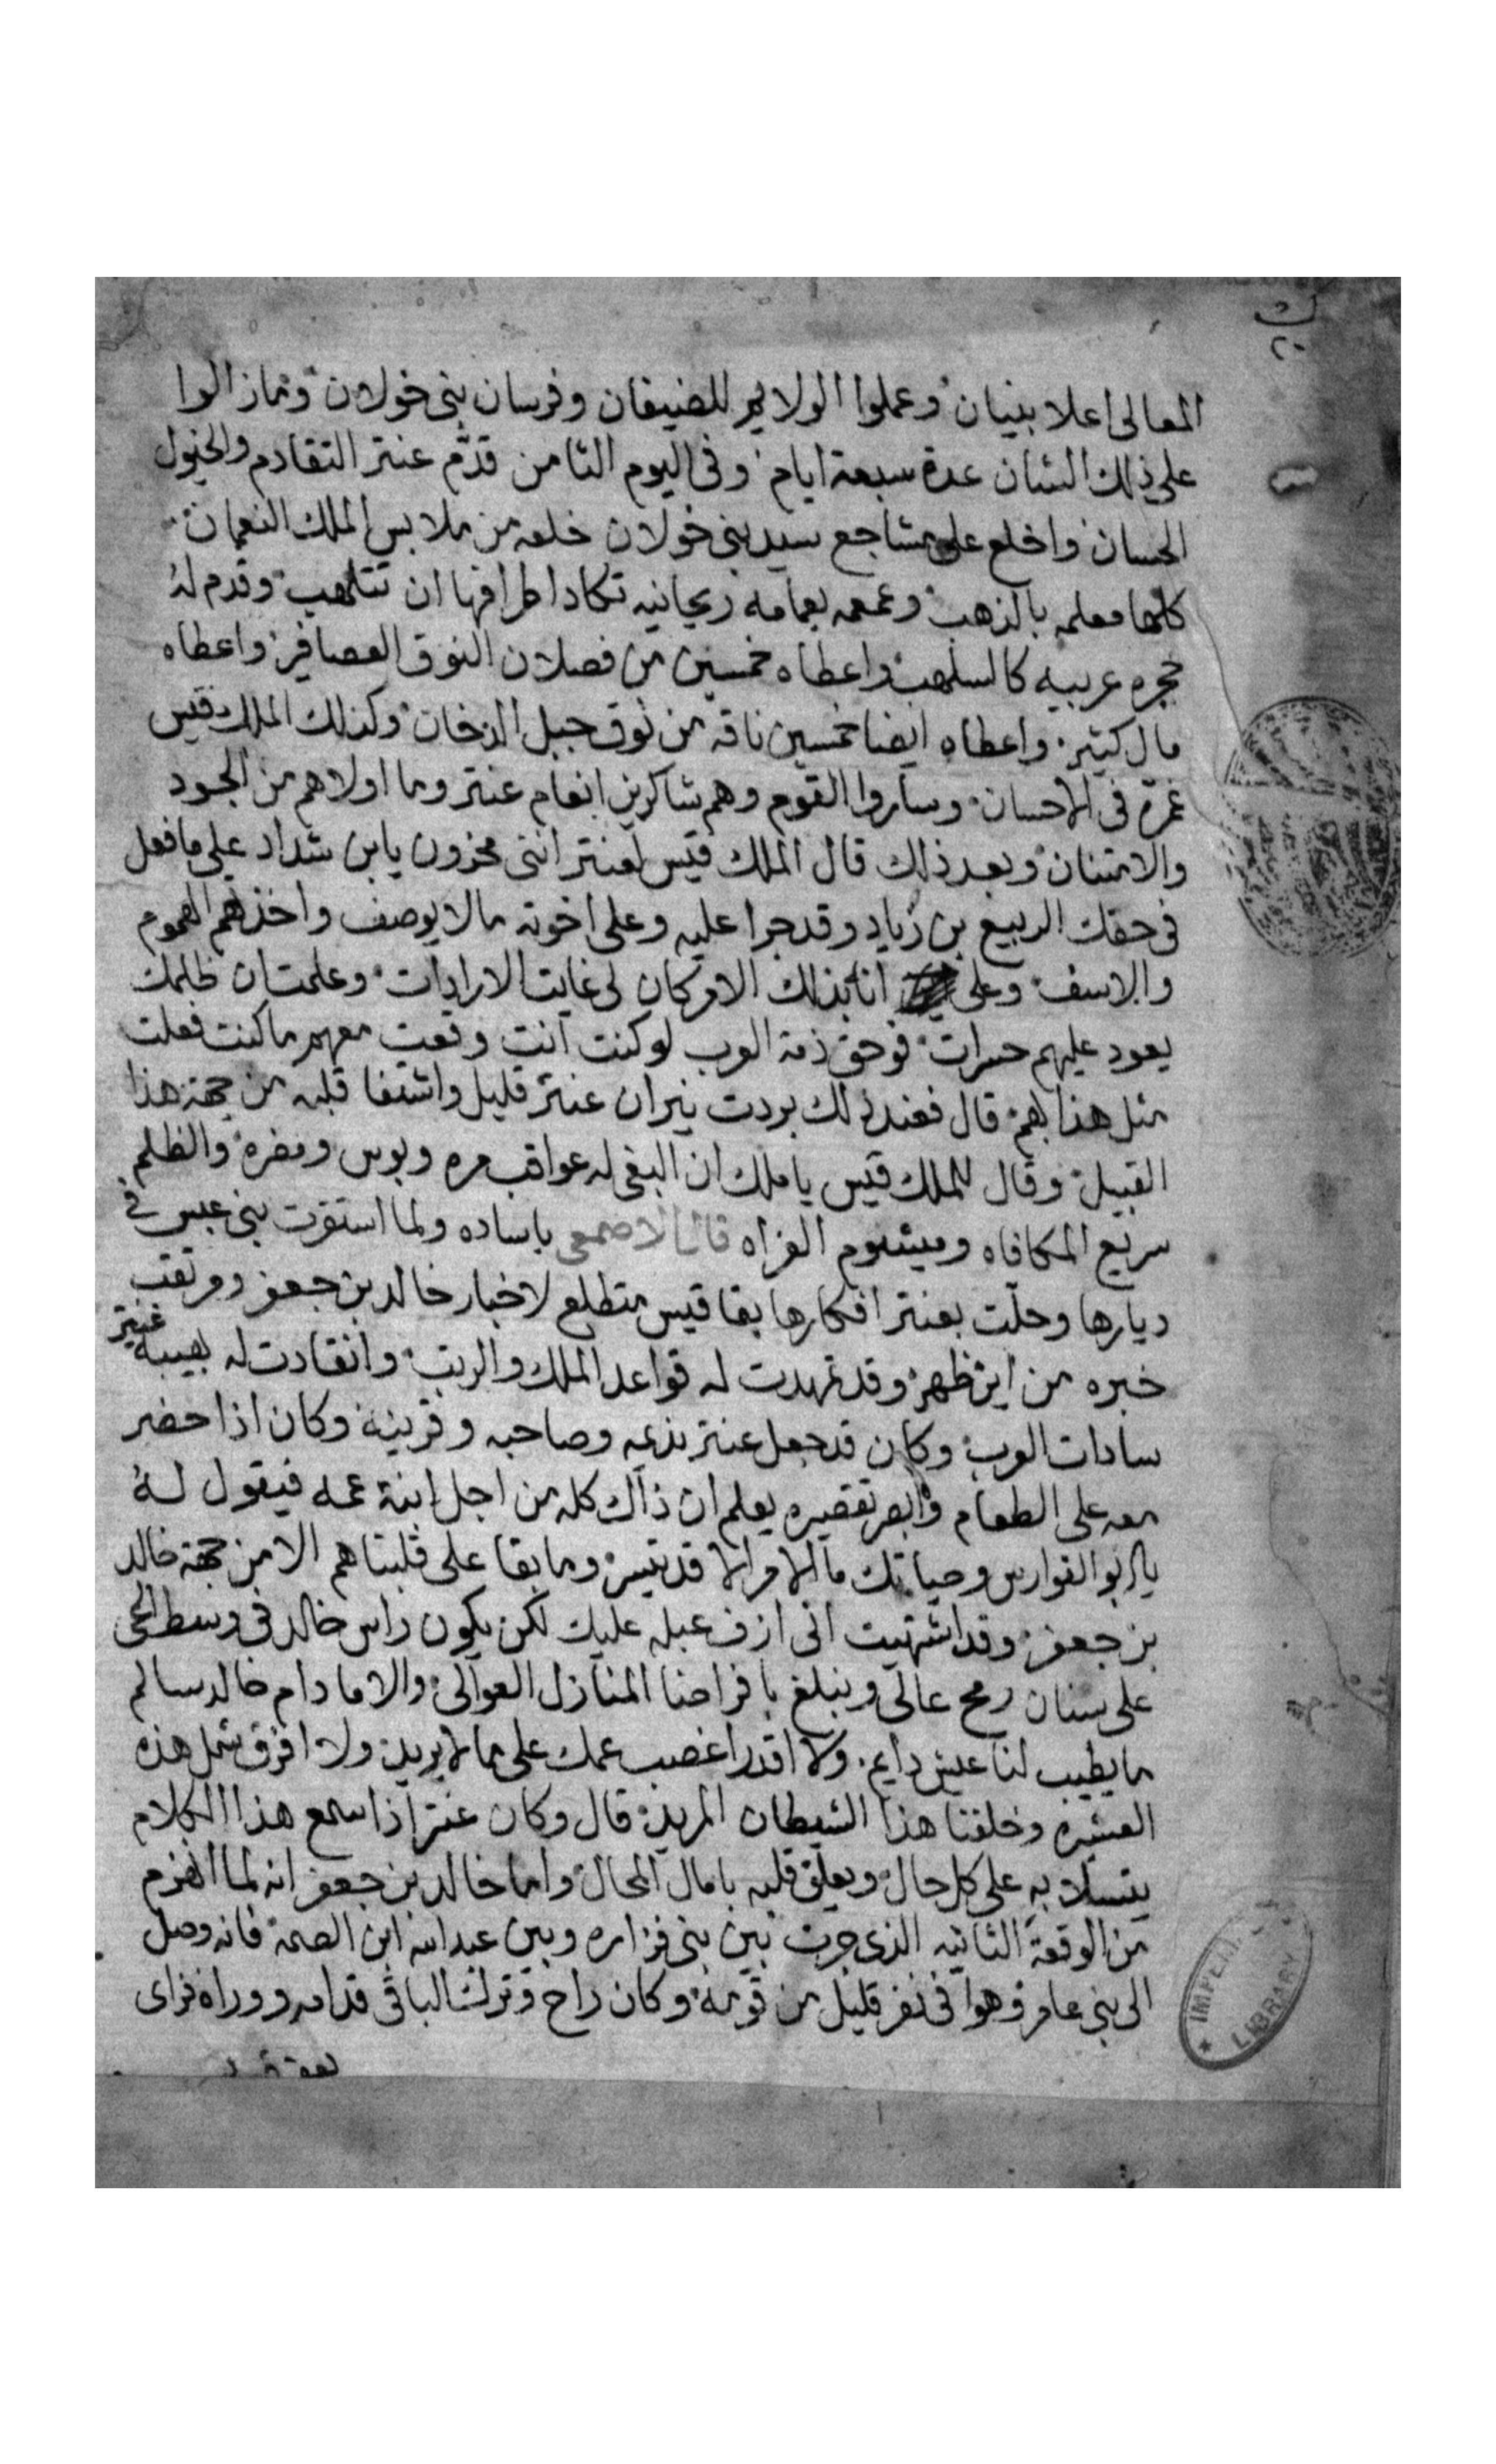 ك
٢٠
المعالى اعلا بنيان وعملوا الولايم للضيفان وفرسان بنى خولان وما زالوا
على ذلك الشان عدة سبعة ايام وفى اليوم الثامن قدّم عنتر التقادم والخيول
الحسان واخلع على مشاجع سيد بنى خولان خلعه من ملابس الملك النعمان
كلها معلمه بالذهب وعممه بعمامه ريحانيه تكاد اطرافها ان تتلهب وقدم له
حجره عربيه كالسلهب واعطاه خمسين من فصلان النوق العصافير واعطاه
مال كثير واعطاه ايضا خمسين ناقه من نوق جبل الدخان وكذلك الملك قيس
غمرة فى الاحسان وساروا القوم وهم شاكرين انعام عنتر وما اولاهم من الجود
والامتنان وبعد ذلك قال الملك قيس لعنتر اننى محزون يابن شداد على ما فعل
فى حقك الربيع بن زياد وقد جرا عليه وعلى اخوته مالا يوصف واخذهم الهموم
والاسف وعلى انا بذلك الامر كان لى غايت الارادات وعلمت ان ظلمك
يعود عليهم حسرات فوحق ذمة العرب لو كنت انت وقعت معهم ما كنت فعلت
مثل هذا بهم قال فعند ذلك بردت نيران عنتر قليل واشتفا قلبه من جهة هذا
القبيل وقال للملك قيس يا ملك ان البغى له عواقب مره وبوس ومضره والظلم
سريع المكافاه وميشوم الغزاه قال الاصمعى ياساده ولما استقرت بنى عبس فى
ديارها وحلّت بعنتر افكارها بقا قيس متطلع لاخبار خالد بن جعفر ومرتقب
خبره من اين ظهر وقد تمهدت له قواعد الملك والرتب وانقادت له بهيبة عنتر
سادات العرب وكان قد جعل عنتر نديمه وصاحبه وقرينه وكان اذا حضر
معه على الطعام وابصر تقصيره يعلم ان ذالك كله من اجل ابنة عمه فيقول له
يا ابو الفوارس وحياتك ما الامر الا قد تيسر وما بقا على قلبنا هم الا من جهة خالد
بن جعفر وقد اشتهيت انى ازف عبله عليك لكن يكون راس خالد فى وسط الحى
على سنان رمح عالى ونبلغ بافراحنا المنازل العوالى والا ما دام خالد سالم
ما يطيب لنا عيش دايم ولا اقدر اغصب عمك على ما لا يريد ولا افرق شمل هذه
العشيره وخلفنا هذا الشيطان المريد قال وكان عنتر اذا سمع هذا الكلام
يتسلا به على كل حال ويعلق قلبه بامال المحال واما خالد بن جعفر انه لما انهزم
من الوقعة الثانيه الذى جرت بين بنى فزاره وبين عبد الله ابن الصمه فانه وصل
الى بنى عامر وهوا فى نفر قليل من قومه وكان راح وترك الباقى قدامه ووراه فراى
IMPERIAL
LIBRARY